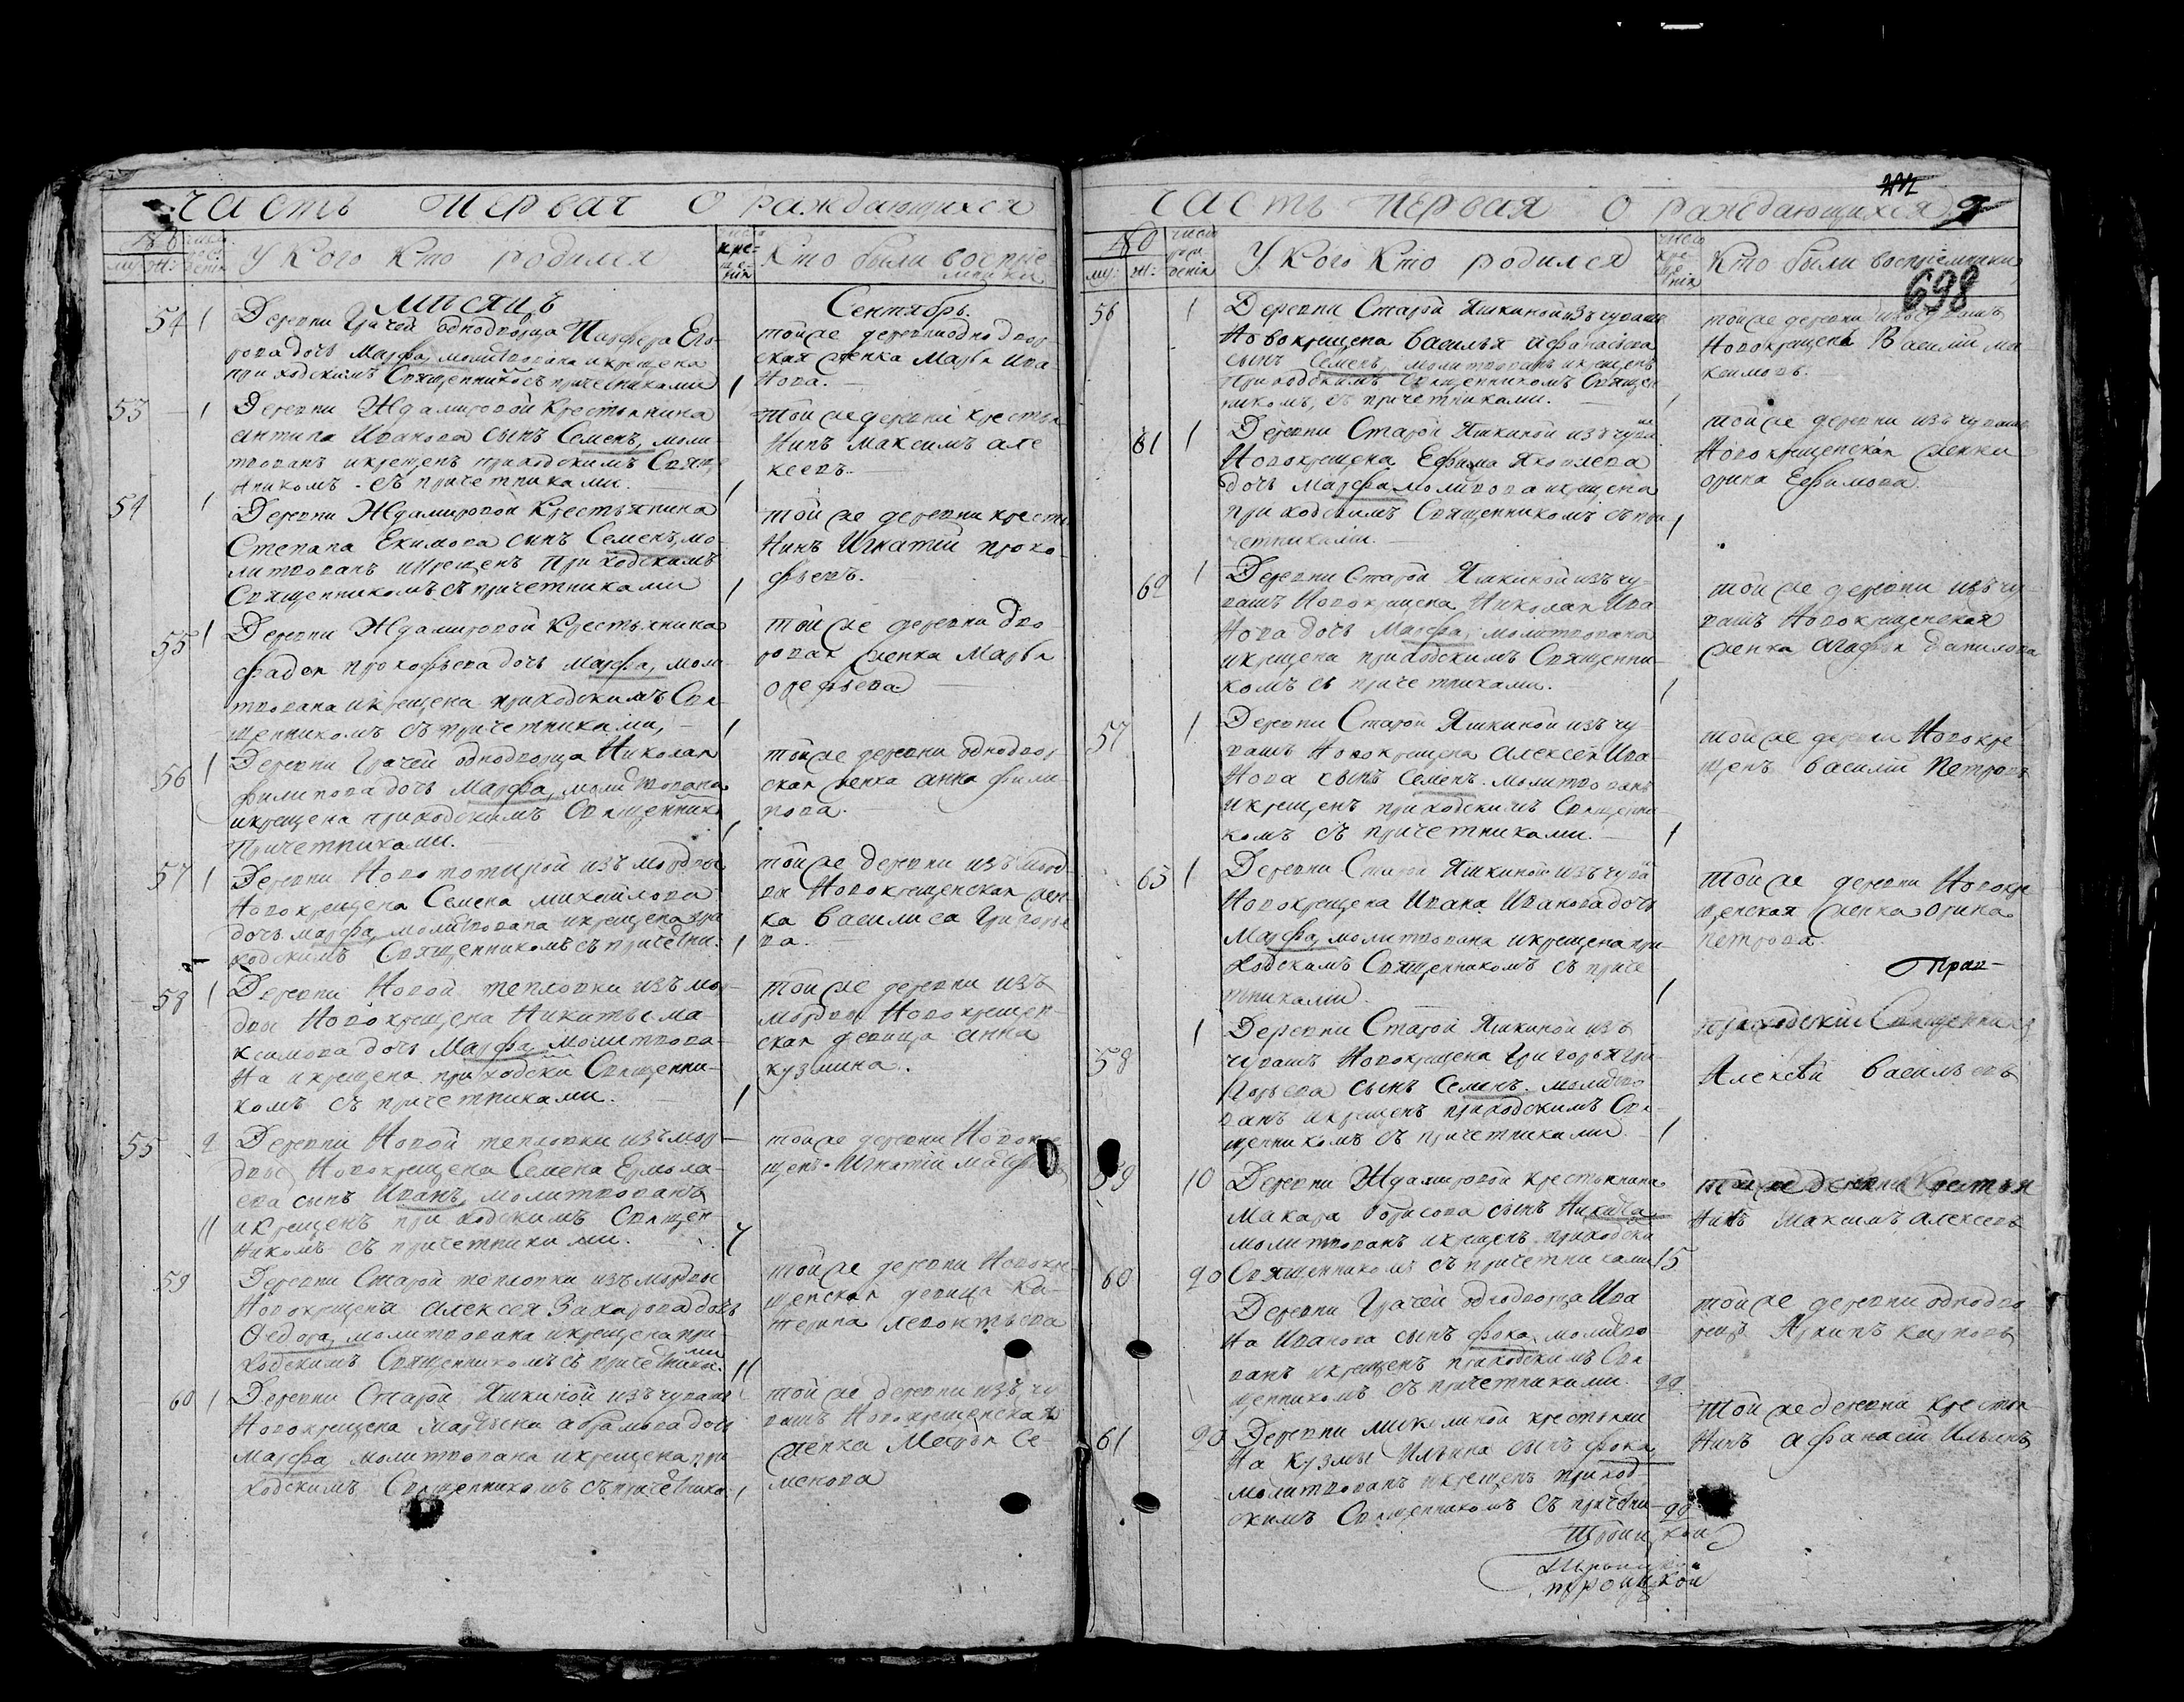 часть первая о раждающихся
№
число рождения
У кого кто родился
число крещения
Кто были восприемники
мцсяцъ
Сентябрь.
54 1
Деревни Грачей однодворца Парфера Его-
рова дочь Марфа, молитвована и крещена
приходскимъ Священникомъ съ причетниками
1
той же деревни однодвор-
ская женка Марья Ива-
нова.
53 1
Деревни Ждамировой Крестьянина
Антипа Иванова сынъ Семенъ, моли-
твованъ и крещенъ приходскимъ Священ
никомъ съ причетниками.
1
той же деревни крестья
нинъ Максимъ Але
ксеевъ.
54 1
Деревни Ждамировой Крестьянина
Степана Екимова сынъ Семенъ, мо-
литвованъ и крещенъ приходскимъ
Священникомъ съ причетниками
1
той же деревни крестья
нинъ Игнатий проко-
фьевъ.
55 1
Деревни Ждамировой Крестьянина
Фадея прокофьева дочь Марфа, моли-
твована и крещена приходскимъ Свя-
щенникомъ съ причетниками,
1
той же деревни дво
ровая женка Марья
орефьева
56 1
Деревни Грачей однодворца Николая
филипова дочь Марфа, молитвована
и крещена приходскимъ Священнико
Причетниками.
1
той же деревни однодвор
ская женка Анна фили-
пова.
57 1
Деревни из мордвы
Новокрещена Семена михайлова
дочь марфа, молитвована и крещена при
ходскимъ Священникомъ съ причетни.
1
той же деревни изъ морд
вы Новокрещенская жен
ка Василиса Григорье
ва.
58 1
Деревни Новой тепловки изъ мор-
двы Новокрещена Никиты ма-
ксимова дочь Марфа, молитвова-
на и крещена приходски Священни-
комъ съ причетниками.
1
той же деревни изъ
мордвы Новокрещен-
ская девица Анна
кузмина.
55 2
Деревни Новой тепловки изъ мор-
двы Новокрещена Семена Ермола-
ева сынъ Иванъ, молитвованъ
и крещенъ приходскимъ Священ-
никомъ съ причетниками.
7
той же деревни Новокре
щенъ Игнатий
59 11
Деревни Старой тепловки изъ мордвы
Новокрещена Алексея Захарова дочь
Федора, молитвована и крещена при-
ходскимъ Священникомъ съ причетника.
ми
11
той же деревни Новокре
щенская девица Ка-
терина
60 1
Деревни Старой Яшкиной изъ чувашъ
Новокрещена абрамова дочь
Марфа, молитвована и крещена при
ходскимъ Священникомъ съ причетника
1
той же деревни изъ чу
вашъ Новокрещенская
женка Се-
менова
часть первая о раждающихся
9
698
№
му: ж:
число рождения
У кого Кто родился
число крещения
Кто были восприемники
56 1
Деревни Старой Яшкиной изъ чувашъ
Новокрещена Василья Афанасьева
сынъ Семенъ, молитвованъ и крещенъ
Приходскимъ Священникомъ Священ
никомъ, съ причетниками.
1
той же деревни изъ чувашъ
Новокрещенъ Василий ма
ксимовъ.
61 1
Деревни Старой Яшкиной изъ чува
шъ
Новокрещена Ефима Яковлева
дочь Марфа молитвова и крещена
приходскимъ Священникомъ съ при
четниками.
1
той же деревни изъ чувашъ
Новокрещенская женка
орина Ефимова
62 1
Деревни Старой Яшкиной изъ чу-
вашъ Новокрещена Николая Ива
нова дочь Марфа, молитвована
и крещена приходскимъ Священни-
комъ съ причетниками.
1
той же деревни изъ чу-
вашъ Новокрещенская
женка Агафья данилова
57 1
Деревни Старой Яшкиной изъ чу
вашъ Новокрещена Алексея Ива
нова сынъ Семенъ. молитвованъ
и крещенъ приходскимъ Священни
комъ съ причетниками.
1
той же деревни Новокре
щенъ Василий Петровъ
63 1
Деревни Старой Яшкиной изъ чува
Новокрещена Ивана Иванова дочь
Марфа, молитвована и крещена при-
ходскимъ Священникомъ съ приче
тниками.
1
той же деревни Новокре
щенская женка орина
петрова.
58 1
Деревни Старой Яшкиной изъ
чувашъ Новокрещена Григорья Гри
горьева сынъ Семенъ. молитво
ванъ и крещенъ приходскимъ Свя-
щенникомъ съ причетниками.
1
приходский Священникъ
Алексѣй Васильевъ
59 10
Деревни Ждамировой крестьянина
Макара Борисова сынъ Никита
молитвованъ и крещенъ приходски
Священникомъ съ причетниками
15
той же деревни Крестья
нинъ Максимъ Алексеевъ
60 20
Деревни Грачей однодворца Ива
на Иванова сынъ Фока, молитво-
ванъ и крещенъ приходскимъ Свя
щенникомъ съ причетниками.
22
той же деревни однодво
рецъ Архипъ карповъ
61 20
Деревни крестьяни
на кузмы Ильина сынъ Фока,
молитвованъ и крещенъ приход-
скимъ Священникомъ съ причетни-
22
той же деревни крестья-
нинъ Афанасий Ильинъ
Троицкой
троицкой